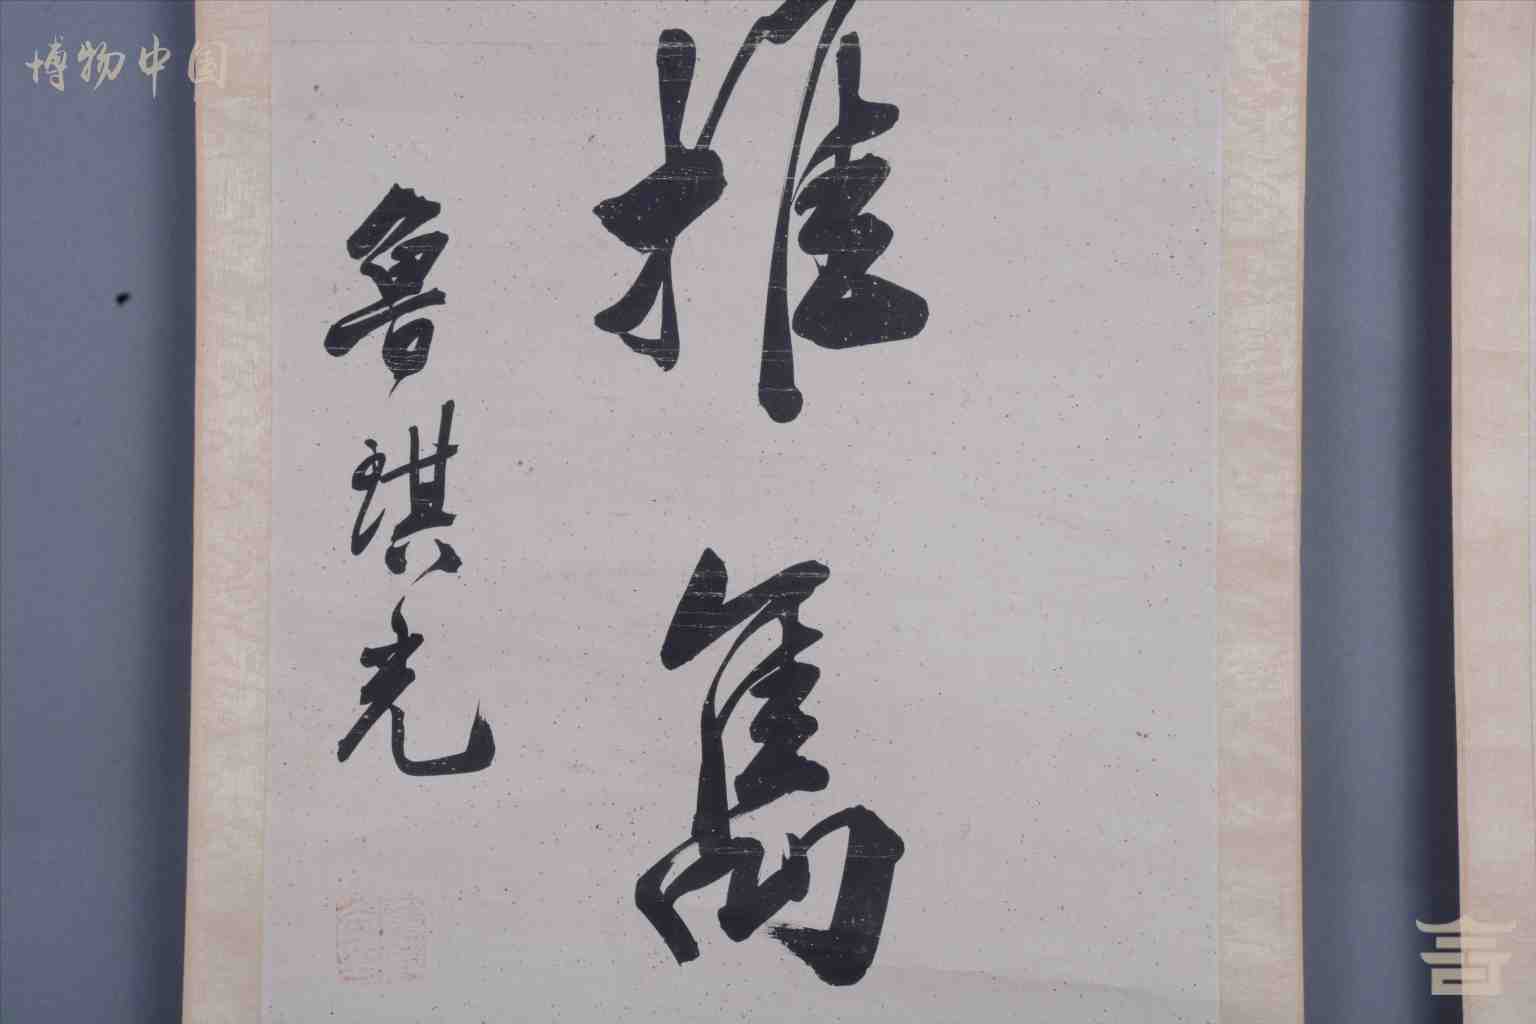 博物中国
推雋
魯琪光